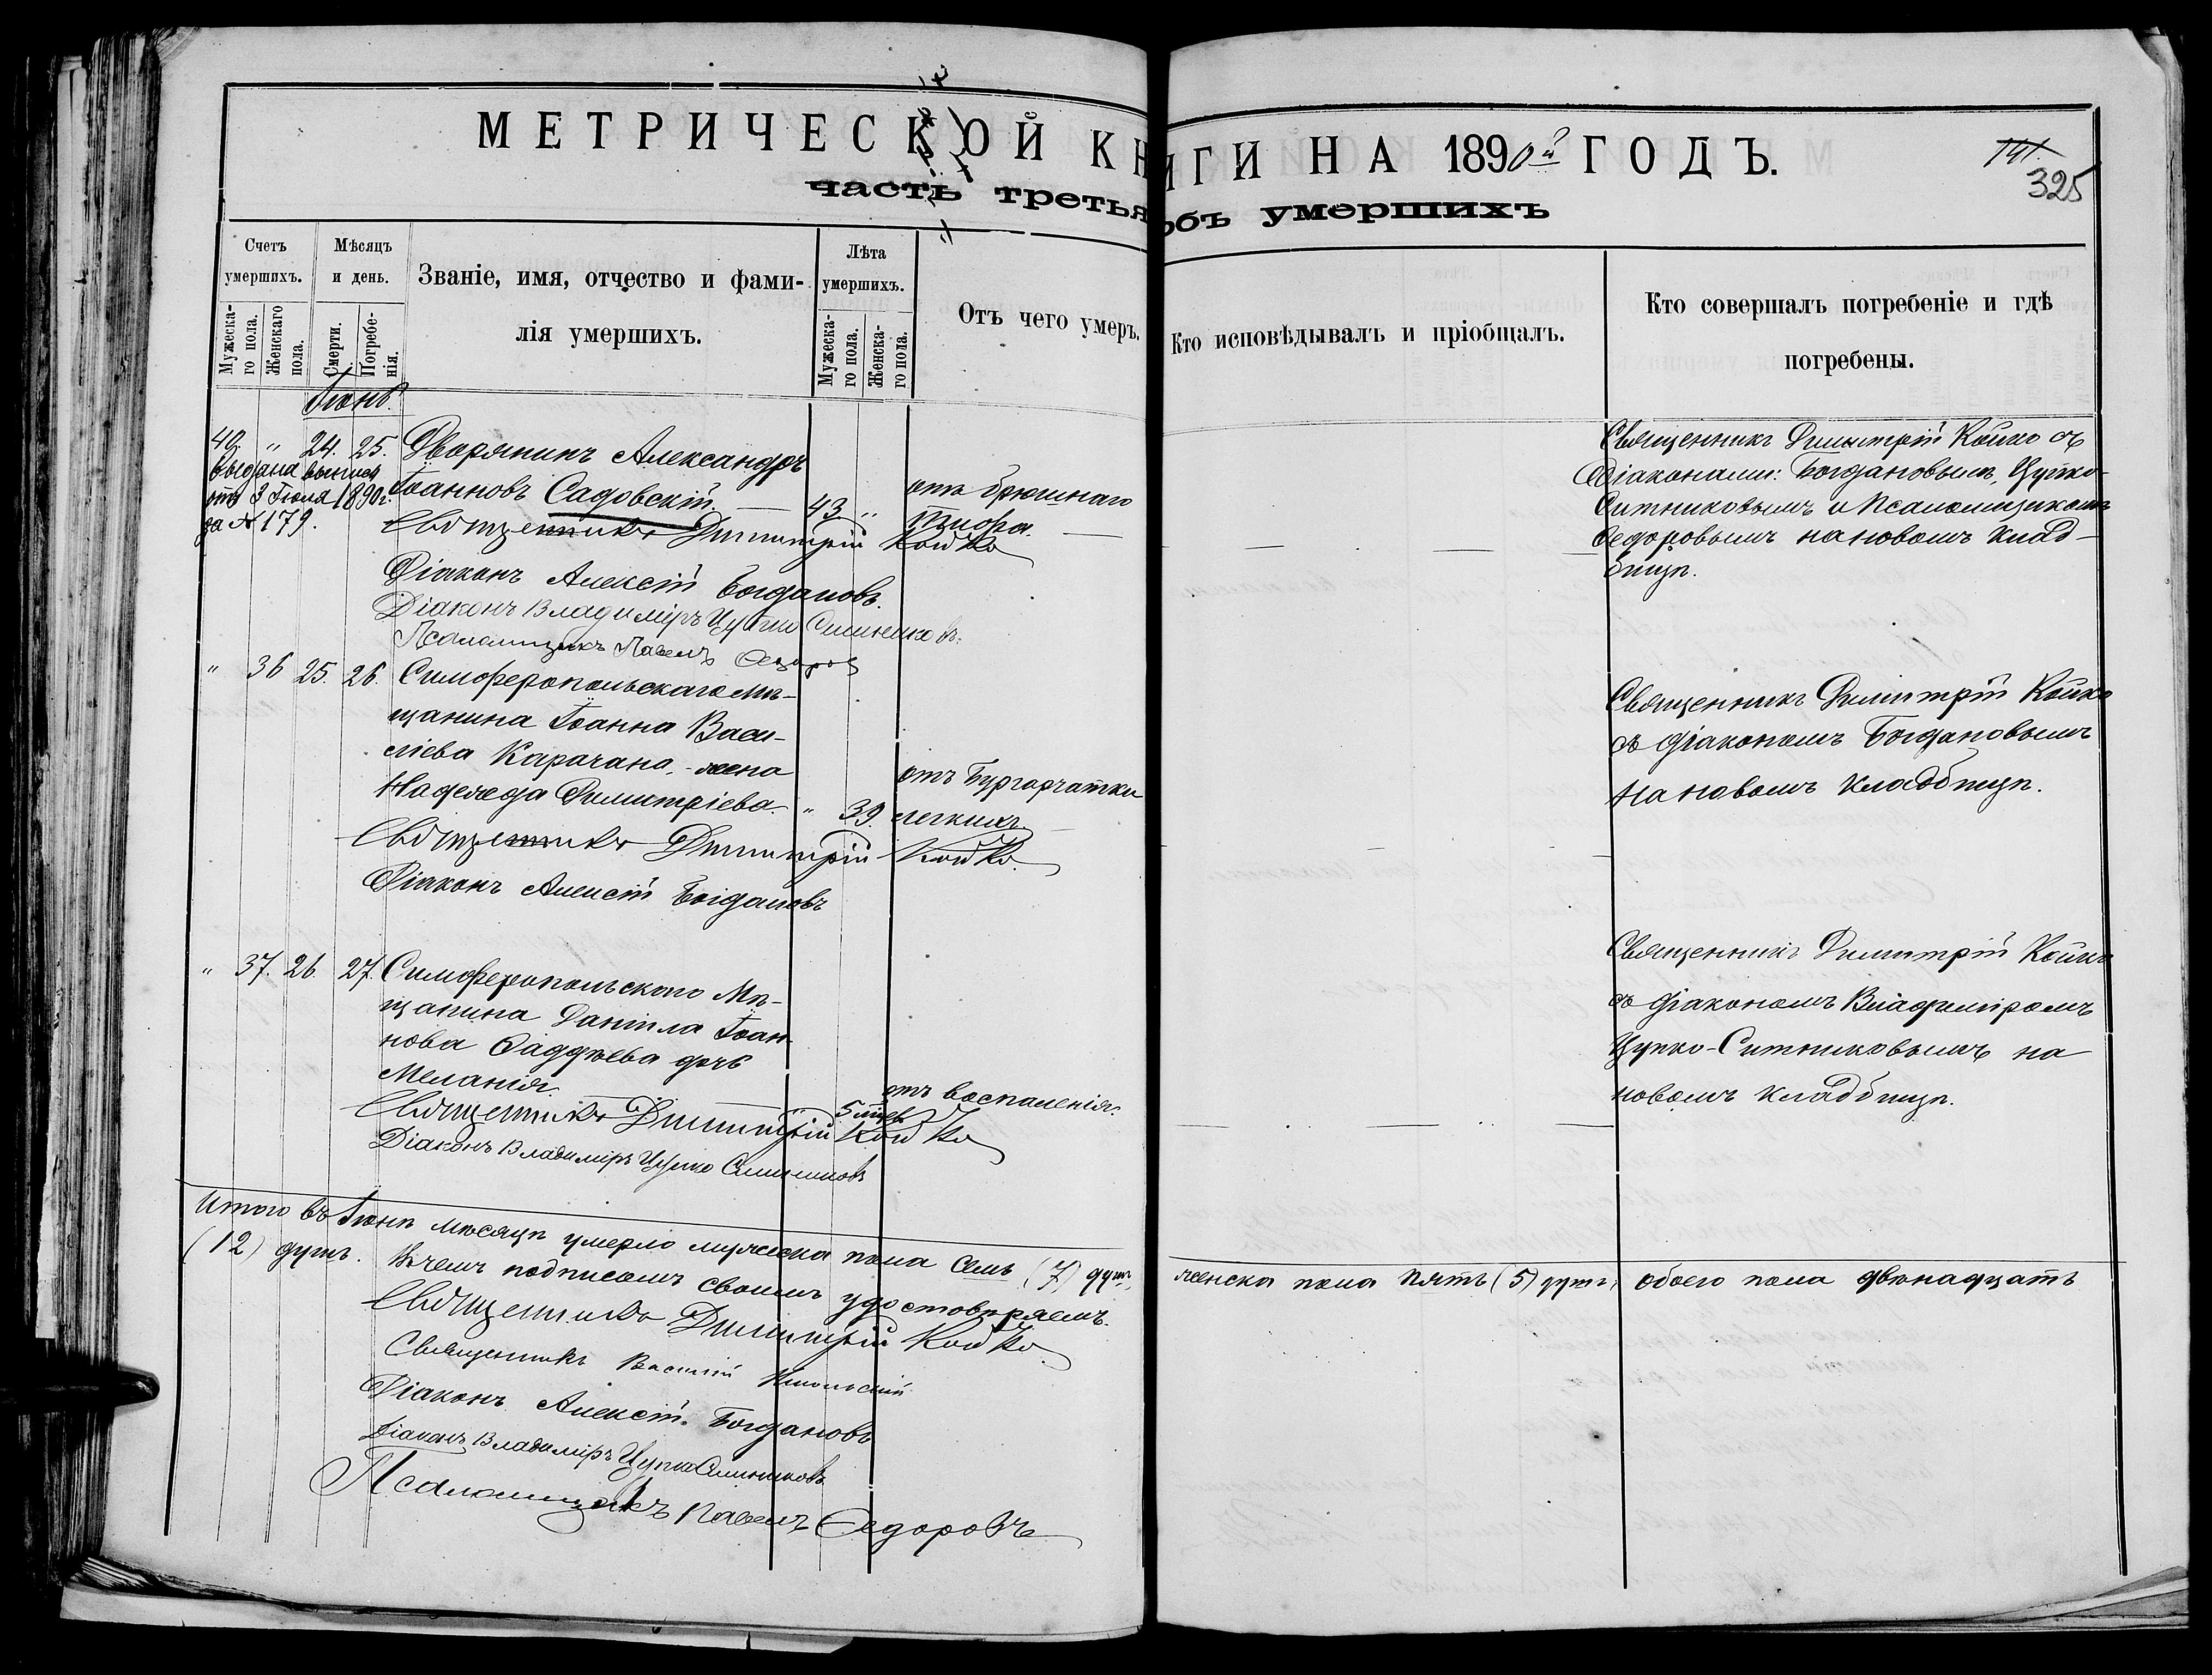 МЕТРИЧЕСКОЙ КНИГИ НА 1890й ГОДЪ.
часть третья объ умершихъ
141.
325
Счетъ умершихъ.
Мужеска-го пола.
Женскаго пола.
Мѣсяцъ и день.
Смерти.
Погребе-нія.
Званіе, имя, отчество и фами-
лія умершихъ.
Лѣта умершихъ.
Мужеска-го пола.
Женска-го пола.
Отъ чего умеръ.
Кто исповѣдывалъ и пріобщалъ.
Кто совершалъ погребеніе и гдѣ
погребены.
Іюнь.
40. " 24. 25. Дворянинъ Александръ
Іоанновъ Садовскій. — 43 "
отъ брюшнаго
тифа. —
Выдана выпись
отъ 3 Іюля 1890 г.
за № 179.
Священникъ Димитрій Койко
Діаконъ Алексій Богдановъ.
Діаконъ Владиміръ Цупко Ситниковъ.
Псаломщикъ Павелъ Ѳедоровъ
Священникъ Димитрій Койко съ
Діаконами: Богдановымъ, Цупко-
Ситниковымъ и Псаломщикомъ
Ѳедоровымъ на новомъ клад-
бищѣ.
" 36 25. 26. Симферопольскаго мѣ-
щанина Іоанна Васи-
ліева Карачана, - жена
Надежда Димитріева. " 39.
отъ бугорчатки
легкихъ
Священникъ Димитрій Койко.
Діаконъ Алексій Богдановъ
Священникъ Димитрій Койко
съ діакономъ Богдановымъ
на новомъ кладбищѣ.
" 37. 26. 27. Симферопольскаго Мѣ-
щанина Даніила Іоан-
нова дочь
Меланія.
отъ воспаленія.
Священникъ Димитрій Койко
Діаконъ Владиміръ Цупко Ситниковъ
Священникъ Димитрій Койко
съ діакономъ Владиміромъ
Цупко-Ситниковымъ на
новомъ кладбищѣ.
Итого въ Іюнѣ мѣсяцѣ умерло мужеска пола семь (7) душъ, женска пола пять (5) душъ, обоего пола двѣнадцать
(12) душъ. Въ чемъ подписомъ своимъ удостовѣряемъ.
Священникъ Димитрій Койко.
Священникъ Василій Никольскій
Діаконъ Алексій Богдановъ
Діаконъ Владиміръ Цупко Ситниковъ
Псаломщикъ Павелъ Ѳедоровъ